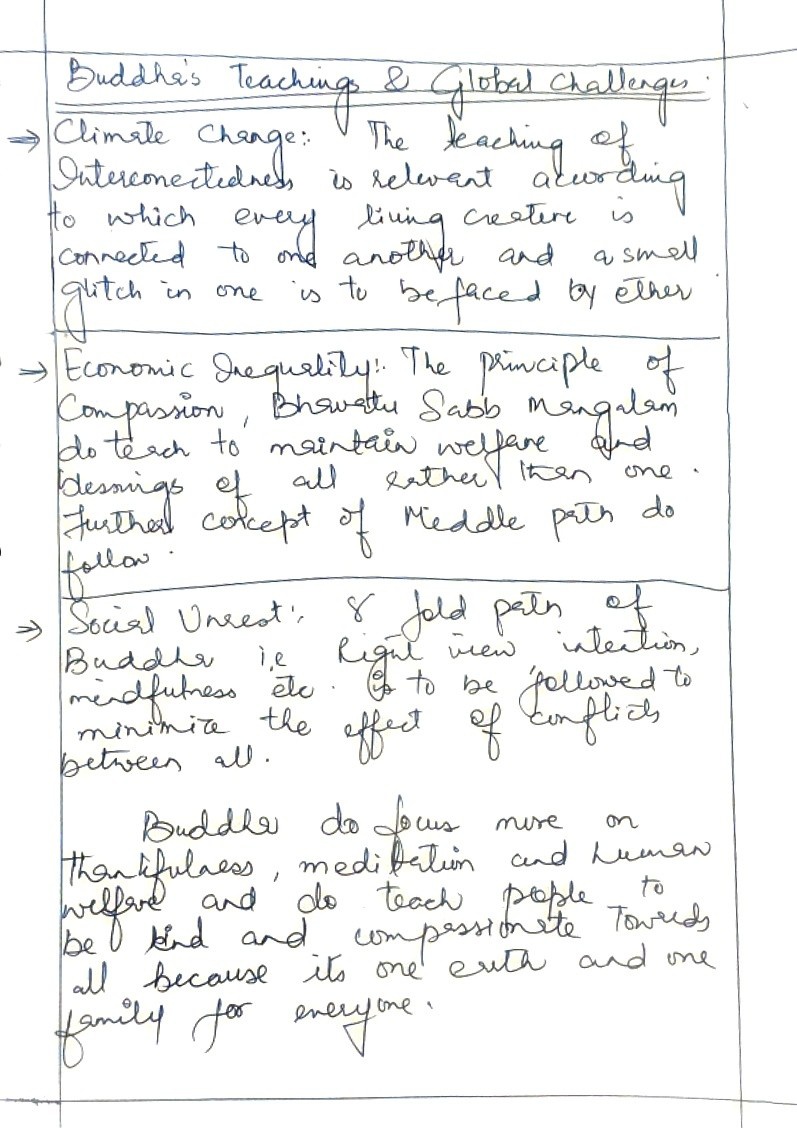 Buddha's Teachings & Global Challenges.
⇒ Climate Change:- The teaching of
Interconectedness is relevant acwording
to which every living creature is
connected to one another and a small
glitch in one is to be faced by other
⇒ Economic Inequality:- The principle of
Compassion, Bhawatu Sabb Mangalam
do teach to maintain welfare and
blessings of all rather than one.
further concept of Meddle path do
follow.
⇒ Social Unrest:- 8 fold path of
Buddha i.e Right view intention,
mindfulness etc. is to be followed to
minimize the effect of conflicts
between all.
Buddha do focus more on
thankfulness, meditation and human
welfare and do teach people to
be kind and compassionate Towards
all because its one earth and one
family for everyone.